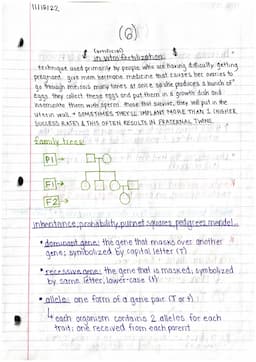 11/17/22
(6)
(artificial)
in vitro fertilization:
technique used primarily by people who are having difficulty getting
pregnant. give mom hormone medicine that causes her ovaries to
go through meiosis many times at once so she produces a bunch of
eggs. they collect these eggs and put them in a growth dish and
inseminate them with sperm. those that survive, they will put in the
uterin wall. * SOMETIMES THEY'LL IMPLANT MORE THAN 1 (HIGHER
SUCCESS RATE) & THIS OFTEN RESULTS IN FRATERNAL TWINS.
family trees:
P1 →
F1 →
F2 →
inheritance, probability, punnet squares, pedigrees, mendel...
• dominant gene: the gene that masks over another
gene; symbolized by capital letter (T)
• recessive gene: the gene that is masked; symbolized
by same letter, lower-case (t)
• allele: one form of a gene pair (T or t)
↳ each organism contains 2 alleles for each
trait; one received from each parent